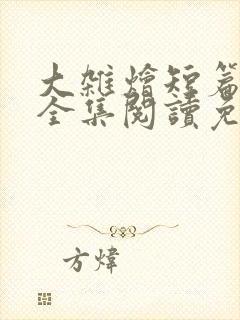 大雜燴短篇
全集閱讀免
方煒